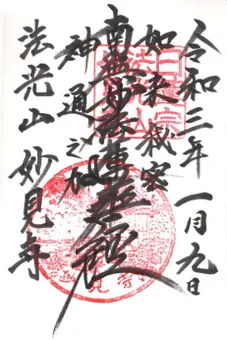 令和三年 一月九日
如来秘密
南無妙法蓮華経
神通之力
法光山 妙見寺
日蓮宗